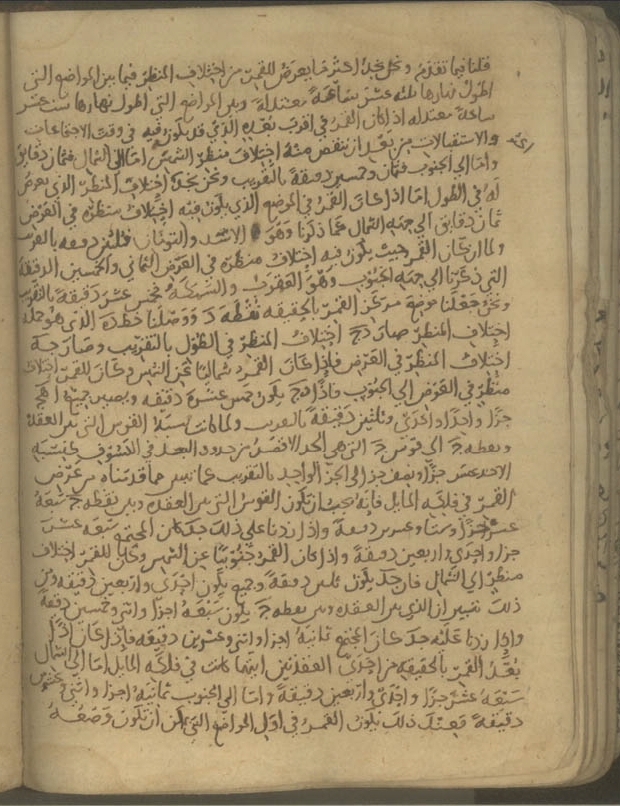 قلنا فيما تقدم ونحن نجد اكثر ما يعرض للقمر من اختلاف المنظر فيما بين المواضع التى
اطول نهارها ثلثه عشر ساعة معتدلة وبين المواضع التى اطول نهارها ست عشر
ساعة معتدله اذا كان القمر فى اقرب بعده الذي قد يكون فيه فى وقت الاجتماعات
والاستقبالات من بعد ان ينقص منه اختلاف منظر الشمس اما الى الشمال فثمان دقايق
واما الى الجنوب فثمان وخمسين دقيقة بالتقريب ونحن نجد اختلاف المنظر الذي يعرض
له فى الطول اما اذا كان القمر فى الموضع الذي يكون فيه اختلاف منظره فى العرض
ثمان دقايق الى جهه الشمال مما ذكرنا وهو الاسد والتومان فثلثين دقيقه بالتقريب
ولما ان كان القمر حيث يكون فيه اختلاف منظره فى العرض الثمانى والخمسين الدقيقة
التى ذكرنا الى جهه الجنوب وهو العقرب والسمكه فخمس عشر دقيقة بالتقريب
ونحن جعلنا موضع مركز القمر بالحقيقه نقطه د ووصلنا خط ده الذي هو جملة
اختلاف المنظر صار دج اختلاف المنظر فى الطول بالتقريب وصار جه
اختلاف المنظر فى العرض فاذا كان القمر شماليا عن الشمس وكان للقمر اختلاف
منظر فى العرض الى الجنوب فاذا دج يكون خمس عشرة دقيقه ويصير جميع اهج
جزا واحدا واحدى وثلثين دقيقة بالتقريب ولما كانت نسبة القوس التى بين العقدة
ونقطه ج الى قوس جه التى هى الحد الاقصى من حدود البعد فى الكسوف كنسبة
الاحد عشر جزا ونصف جزا الى الجزا الواحد بالتقريب كما تبين مما قدمناه من عرض
القمر فى فلكه المايل فانه يجب ان تكون القوس التى بين العقده وبين نقطه ج سبعة
عشر جزا وستا وعشرين دقيقة واذا زدنا على ذلك جد كان المجتمع سبعة عشر
جزا واحدى واربعين دقيقة واذا كان القمر جنوبيا عن الشمس وكان للقمر اختلاف
منظر الى الشمال فان جد يكون ثلثين دقيقة وجميع يكون احدى واربعين دقيقه ومن
ذلك تبين ان الذي بين العقده وبين نقطه ج يكون سبعة اجزا واثنى وخمسين دقيقة
واذا زدنا عليه جد كان المجتمع ثمانية اجزا واثنى وعشرين دقيقه فاذا كان اذا
بعد القمر بالحقيقه من احدى العقدتين ايتهما كانت فى فلكه المايل اما الى الشمال
سبعة عشر جزا واحدى واربعين دقيقه واما الى الجنوب ثمانية اجزا واثنى وعشرين
دقيقة فعند ذلك يكون القمر فى اول المواضع التى يمكن ان تكون وضعه